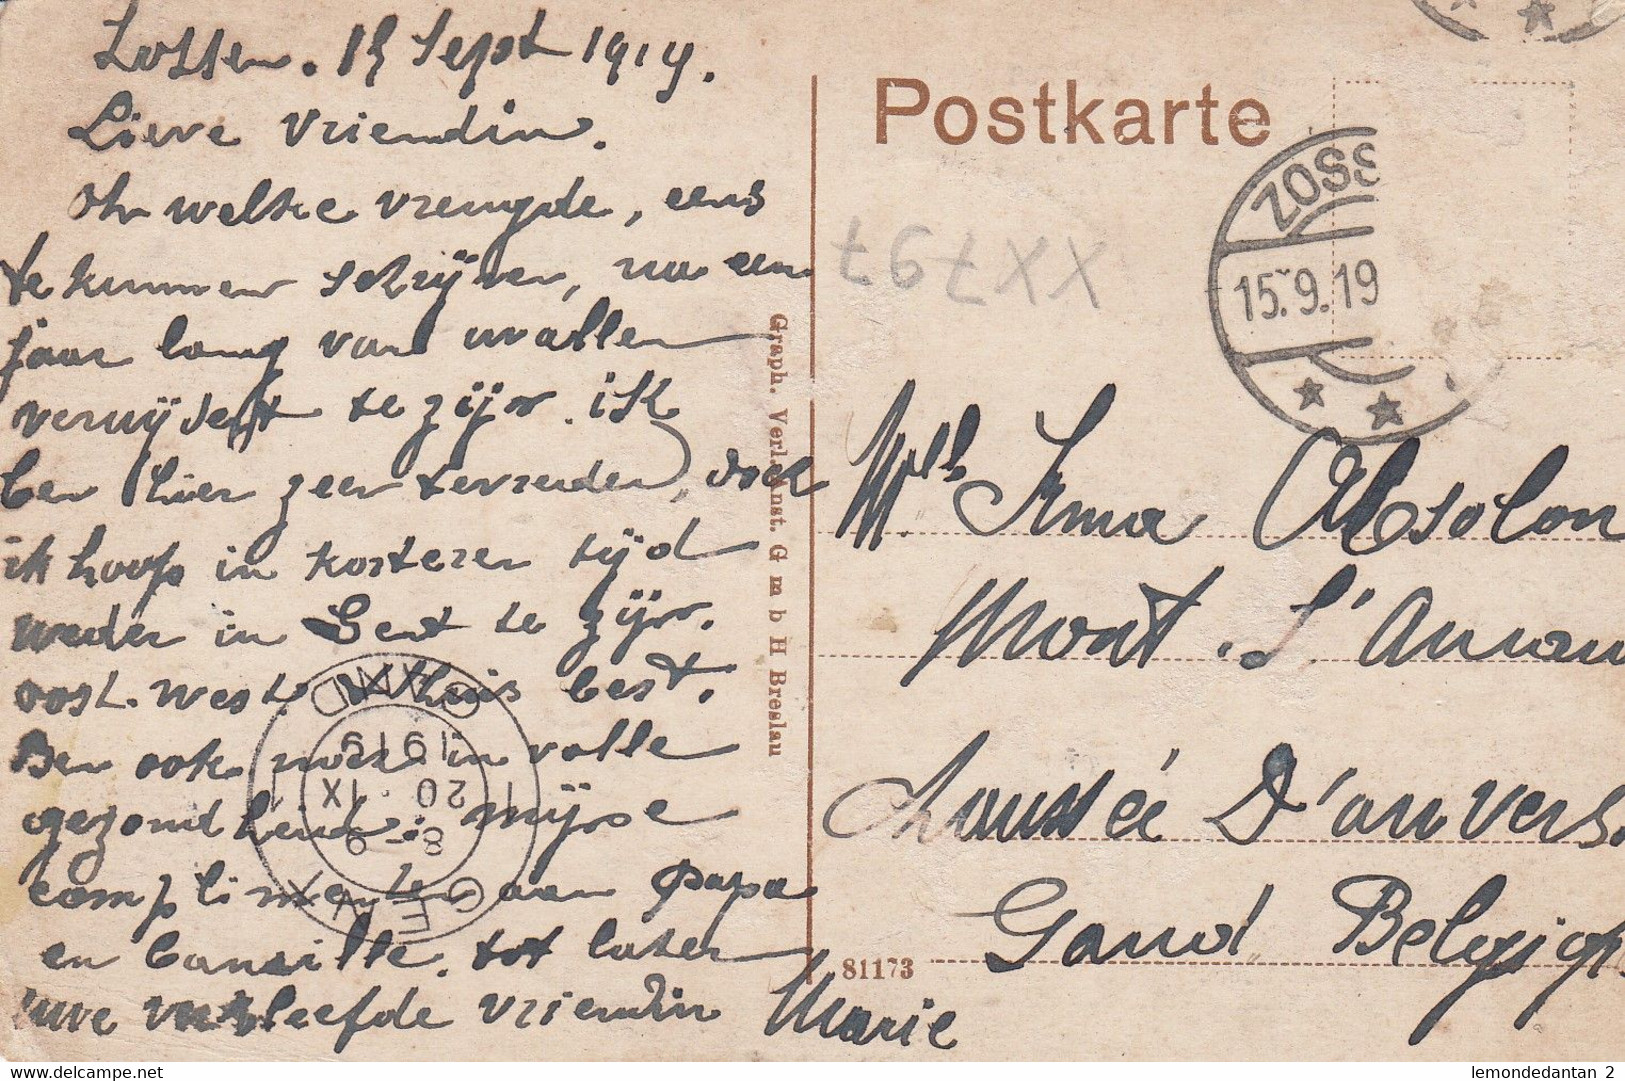 Zossen. 13 Sept 1919.
Lieve Vriendin.
Oh welke vreugde, eens
te kunnen schrijven, na een
jaar lang van u allen
verwijdert te zijn. ik
ben hier zeer tevreden, doch
ik hoop in korteren tijd
weder in Gent te zijn.
oost. west thuis best.
Ben ook noch in volle
gezondheid. mijne
complimenten aan Papa
en Camille. tot later
uwe verliefde vriendin Marie
Graph. Verl. Anst. G m b H Breslau
GENT
8-9
20 IX
1919
GAND
Postkarte
ZOSS
15.9.19
XX797
Mlle Irma Absolon
Mont St. Amand
Chaussée D'anvers.
Gand Belgique
81173
lemondedantan 2